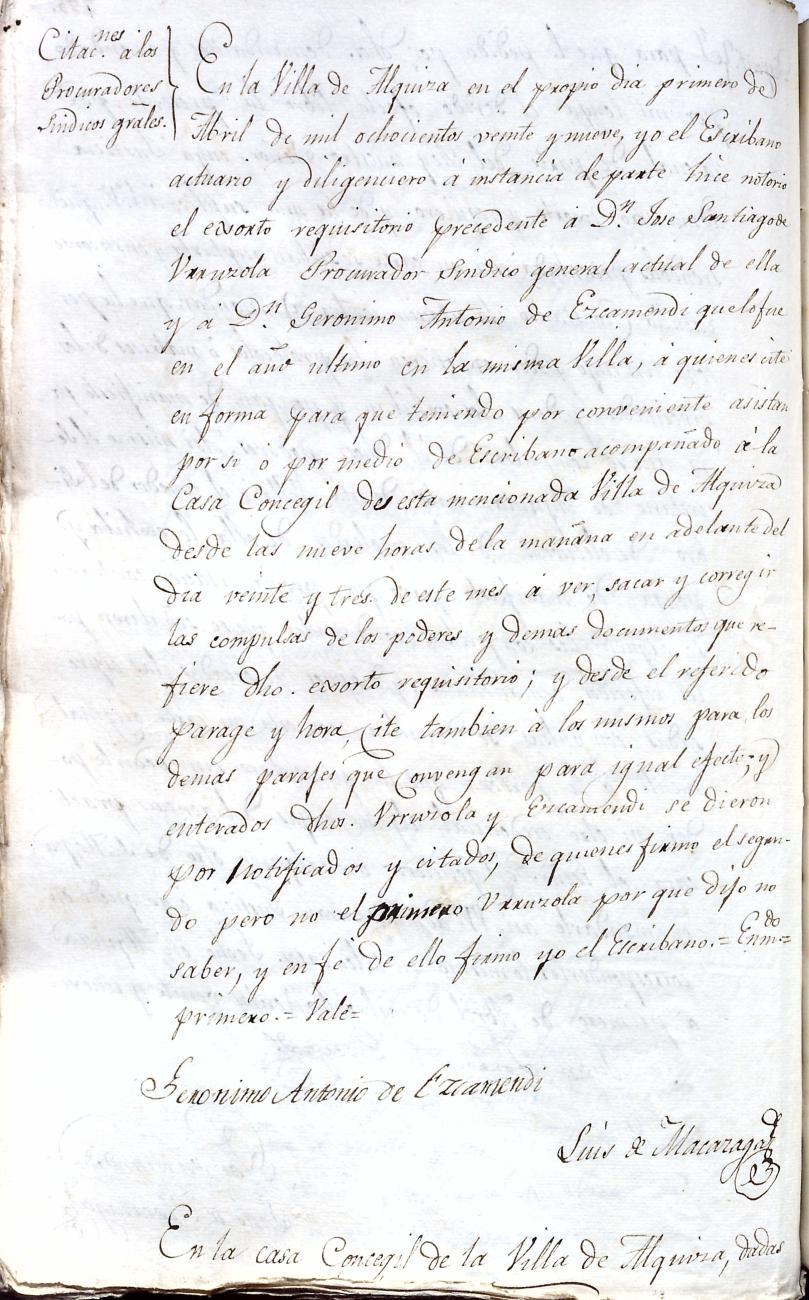 Citac.nes a los
Procuradores
Sindicos grâles.
En la Villa de Alquiza en el propio dia primero de
Abril de mil ochocientos veinte y nueve, yo el Escribano
actuario y diligenciero á instancia de parte hice notorio
el exsorto requisitorio precedente á D.n Jose Santiago de
Urruzola Procurador Sindico general actual de ella
y á D.n Geronimo Antonio de Ezcamendi que lo fue
en el año ultimo en la misma Villa, á quienes cite
en forma para que teniendo por conveniente asistan
por si ó por medio de Escribano acompañado á la
Casa Concegil de esta mencionada Villa de Alquiza
desde las nueve horas de la mañana en adelante del
dia veinte y tres de este mes á ver, sacar y corregir
las compulsas de los poderes y demas documentos que re-
fiere dho. exsorto requisitorio; y desde el referido
parage y hora, cite tambien á los mismos para los
demas parajes que convengan para igual efecto; y
enterados dhos. Urruzola y Ezcamendi se dieron
por notificados y citados, de quienes firmo el segun-
do pero no el primero Urruzola por que dijo no
saber, y en fé de ello firmo yo el Escribano.= Enm.do=
primero.= Vale=
Geronimo Antonio de Ezcamendi
Luis de Macazaga
En la casa Concegil de la Villa de Alquiza, dadas